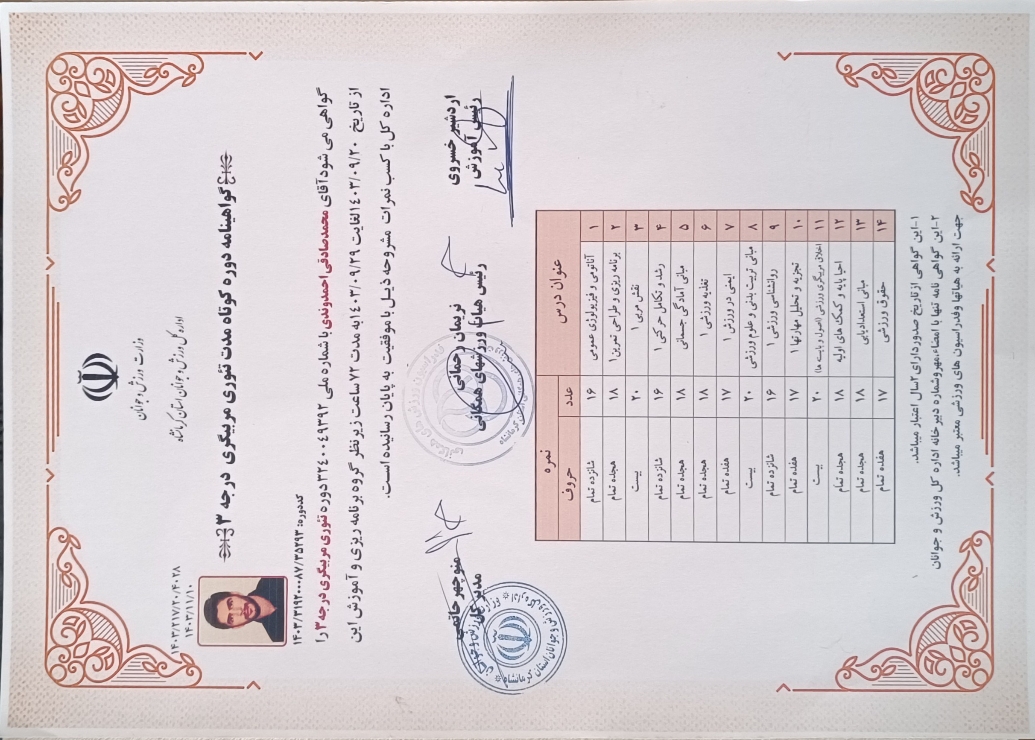 وزارت ورزش و جوانان
اداره کل ورزش و جوانان استان کرمانشاه
۱۴۰۳/۲۱۷/۲۰/۴۰۲۸
۱۴۰۳/۱۱/۱۰
گواهینامه دوره کوتاه مدت تئوری مربیگری درجه ۳
کددوره: ۱۴۰۳/۳۱۹۲۰۰۰۸۷/۳۵۲۹۳
گواهی می شود آقای محمدصادقی احمدوندی با شماره ملی ۳۲۴۰۰۴۹۳۹۲ دوره تئوری مربیگری درجه ۳ را
از تاریخ ۱۴۰۳/۰۹/۲۰ لغایت ۱۴۰۳/۰۹/۲۹ به مدت ۷۲ ساعت زیر نظر گروه برنامه ریزی و آموزش این
اداره کل با کسب نمرات مشروحه ذیل با موفقیت به پایان رسانیده است.
اردشیر خسروی
رئیس آموزش
نریمان رحمانی
رئیس هیات ورزشهای همگانی
منوچهر خاتمی
مدیر کل
عنوان درس نمره
عدد حروف
۱ آناتومی و فیزیولوژی عمومی ۱۶ شانزده تمام
۲ برنامه ریزی و طراحی تمرین ۱ ۱۸ هجده تمام
۳ نقش مربی ۱ ۲۰ بیست
۴ رشد و تکامل حرکتی ۱ ۱۶ شانزده تمام
۵ مبانی آمادگی جسمانی ۱۸ هجده تمام
۶ تغذیه ورزشی ۱ ۱۸ هجده تمام
۷ ایمنی در ورزش ۱ ۱۷ هفده تمام
۸ مبانی تربیت بدنی و علوم ورزشی ۲۰ بیست
۹ روانشناسی ورزشی ۱ ۱۶ شانزده تمام
۱۰ تجزیه و تحلیل مهارتها ۱ ۱۷ هفده تمام
۱۱ اخلاق مربیگری ورزشی (اصول و بایسته ها) ۲۰ بیست
۱۲ احیا پایه و کمک های اولیه ۱۸ هجده تمام
۱۳ مبانی استعدادیابی ۱۸ هجده تمام
۱۴ حقوق ورزشی ۱۷ هفده تمام
۱-این گواهی از تاریخ صدور دارای ۲سال اعتبار میباشد.
۲-این گواهی نامه تنها با امضاء،مهروشماره دبیر خانه اداره کل ورزش و جوانان
جهت ارائه به هیاتها وفدراسیون های ورزشی معتبر میباشد.